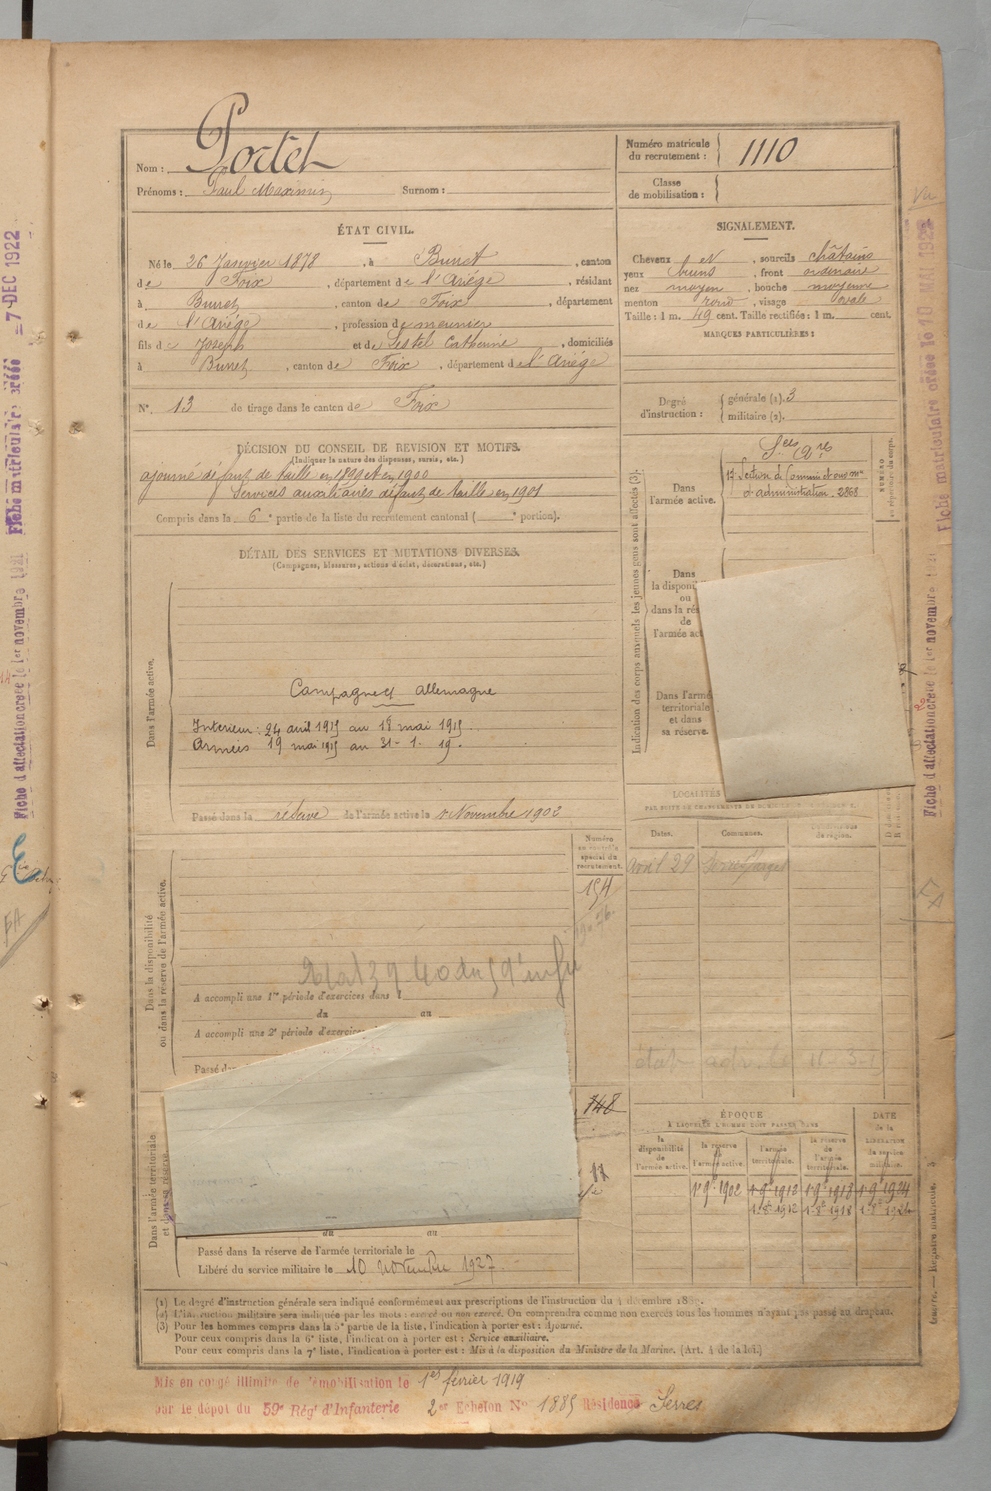 Nom : Portet
Prénoms : Paul Maximin Surnom :
Numéro matricule du recrutement : 1110
Classe de mobilisation :
ÉTAT CIVIL.
Né le 26 Janvier 1878, à Burret, canton
de Foix, département de l'Ariège, résidant
à Burret, canton de Foix, département
de l'Ariège, profession de meunier
fils de Joseph et de Sestel Catherine, domiciliés
à Burret, canton de Foix, département de l'Ariège
N°. 13 de tirage dans le canton de Foix
SIGNALEMENT.
Cheveux et, sourcils châtains
yeux bruns, front ordinaire
nez moyen, bouche moyenne
menton rond, visage ovale
Taille : 1 m. 49 cent. Taille rectifiée : 1 m. cent.
MARQUES PARTICULIÈRES :
Degré d'instruction : générale (1). 3
militaire (2).
DÉCISION DU CONSEIL DE REVISION ET MOTIFS.
(Indiquer la nature des dispenses, sursis, etc.)
ajourné défaut de taille en 1899 et en 1900
Services auxiliaires défaut de taille en 1901
Compris dans la 6e partie de la liste du recrutement cantonal ( e portion).
Indication des corps auxquels les jeunes gens sont affectés (3).
Dans l'armée active.
Ses Ares
Section de Commis et ouvrs
d'administration. 2868
NUMÉRO
Dans
la disponi
ou
dans la rés
de
l'armée act
Dans l'armé
territoriale
et dans
sa réserve.
DÉTAIL DES SERVICES ET MUTATIONS DIVERSES.
(Campagnes, blessures, actions d'éclat, décorations, etc.)
Dans l'armée active.
Campagne ct Allemagne
Intérieur : 24 avril 1915 au 18 mai 1915.
Armées 19 mai 1915 au 31-1.19.
Passé dans la réserve de l'armée active le 1er Novembre 1902
Numéro
au contrôle
spécial du
recrutement.
154
Dans la disponibilité
ou dans la réserve de l'armée active.
A accompli une 1re période d'exercices dans l
du au
A accompli une 2e période d'exercices
Passé da
LOCALITÉS
Dates. Communes.
Avril 29
état adr. le 11-3-1
Dans l'armée territoriale
et dans sa réserve.
748
11
du au
Passé dans la réserve de l'armée territoriale le
Libéré du service militaire le 10 novembre 1927.
ÉPOQUE
À LAQUELLE L'HOMME DOIT PASSER DANS
la disponibilité de l'armée active.
la réserve de l'armée active.
l'armée territoriale.
la réserve de l'armée territoriale.
DATE de la LIBÉRATION du service militaire.
1er 9bre 1902 1er 9bre 1912 1er 9bre 1918 1er 9bre 1924
1er 8bre 1912 1er 8bre 1918 1er 8bre 1924
(1) Le degré d'instruction générale sera indiqué conformément aux prescriptions de l'instruction du 4 décembre 1889.
(2) L'instruction militaire sera indiquée par les mots : exercé ou non exercé. On comprendra comme non exercés tous les hommes n'ayant pas passé au drapeau.
(3) Pour les hommes compris dans la 5e partie de la liste, l'indication à porter est : Ajourné.
Pour ceux compris dans la 6e liste, l'indication à porter est : Service auxiliaire.
Pour ceux compris dans la 7e liste, l'indication à porter est : Mis à la disposition du Ministre de la Marine. (Art. 4 de la loi.)
Mis en congé illimité de démobilisation le 1er février 1919
par le dépôt du 59e Régt d'Infanterie 2er Echelon N° 1885 Résidence Serres
Guerre. — Registre matricule.
Fiche matriculaire créée le 10 MAI 1922
Fiche d'affectation créée le 1er novembre 1921
Fiche matriculaire créée = 7 DEC 1922
Fiche d'affectation créée le 1er novembre 1921
Vu